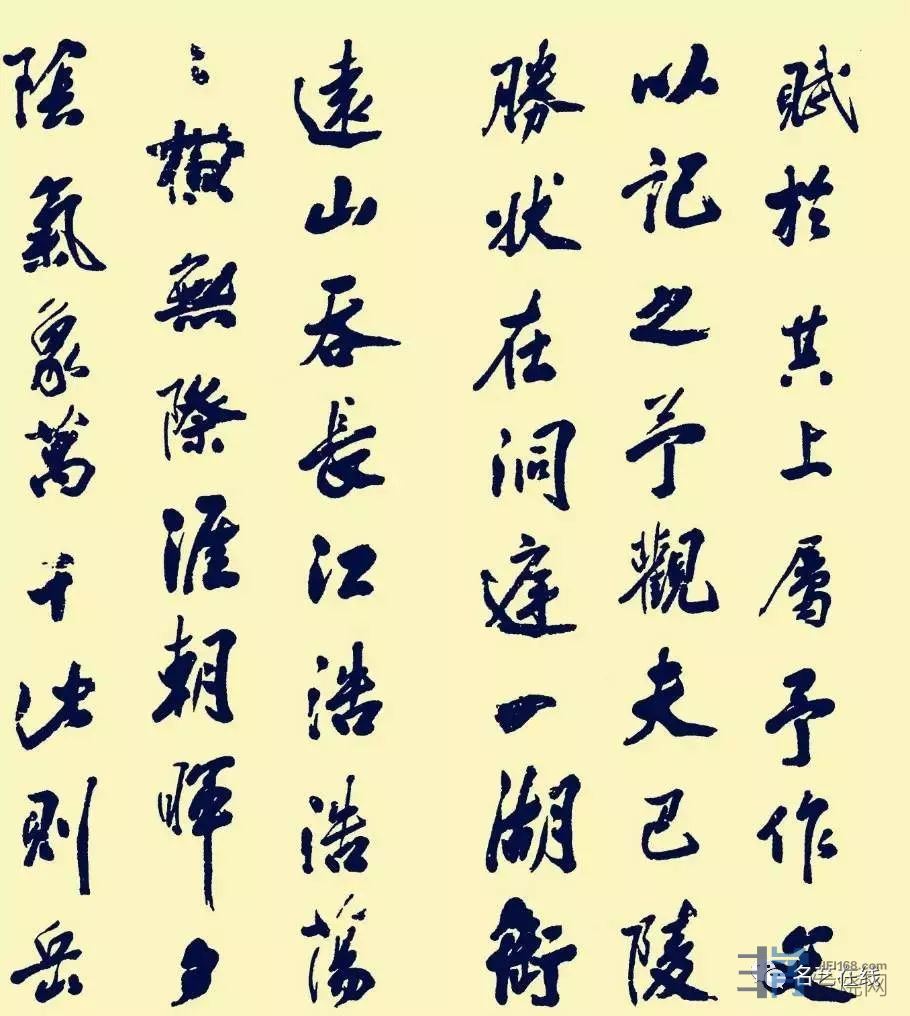 賦於其上屬予作文
以記之予觀夫巴陵
勝状在洞庭一湖銜
遠山吞長江浩浩蕩
〻橫無際涯朝暉夕
陰氣象萬千此則岳
名艺在线